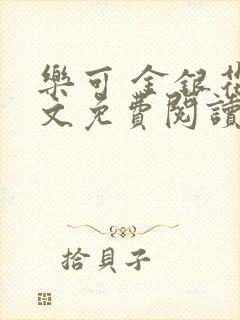 樂可 金銀花
文免費閱讀
拾貝子